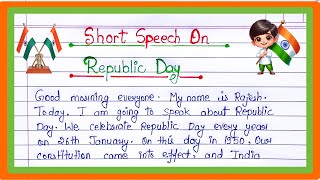 Short Speech On
Republic Day
Good morning everyone. My name is Rajesh.
Today, I am going to speak about Republic
Day. We celebrate Republic Day every year
on 26th January. On this day in 1950, Our
constitution came into effect, and India